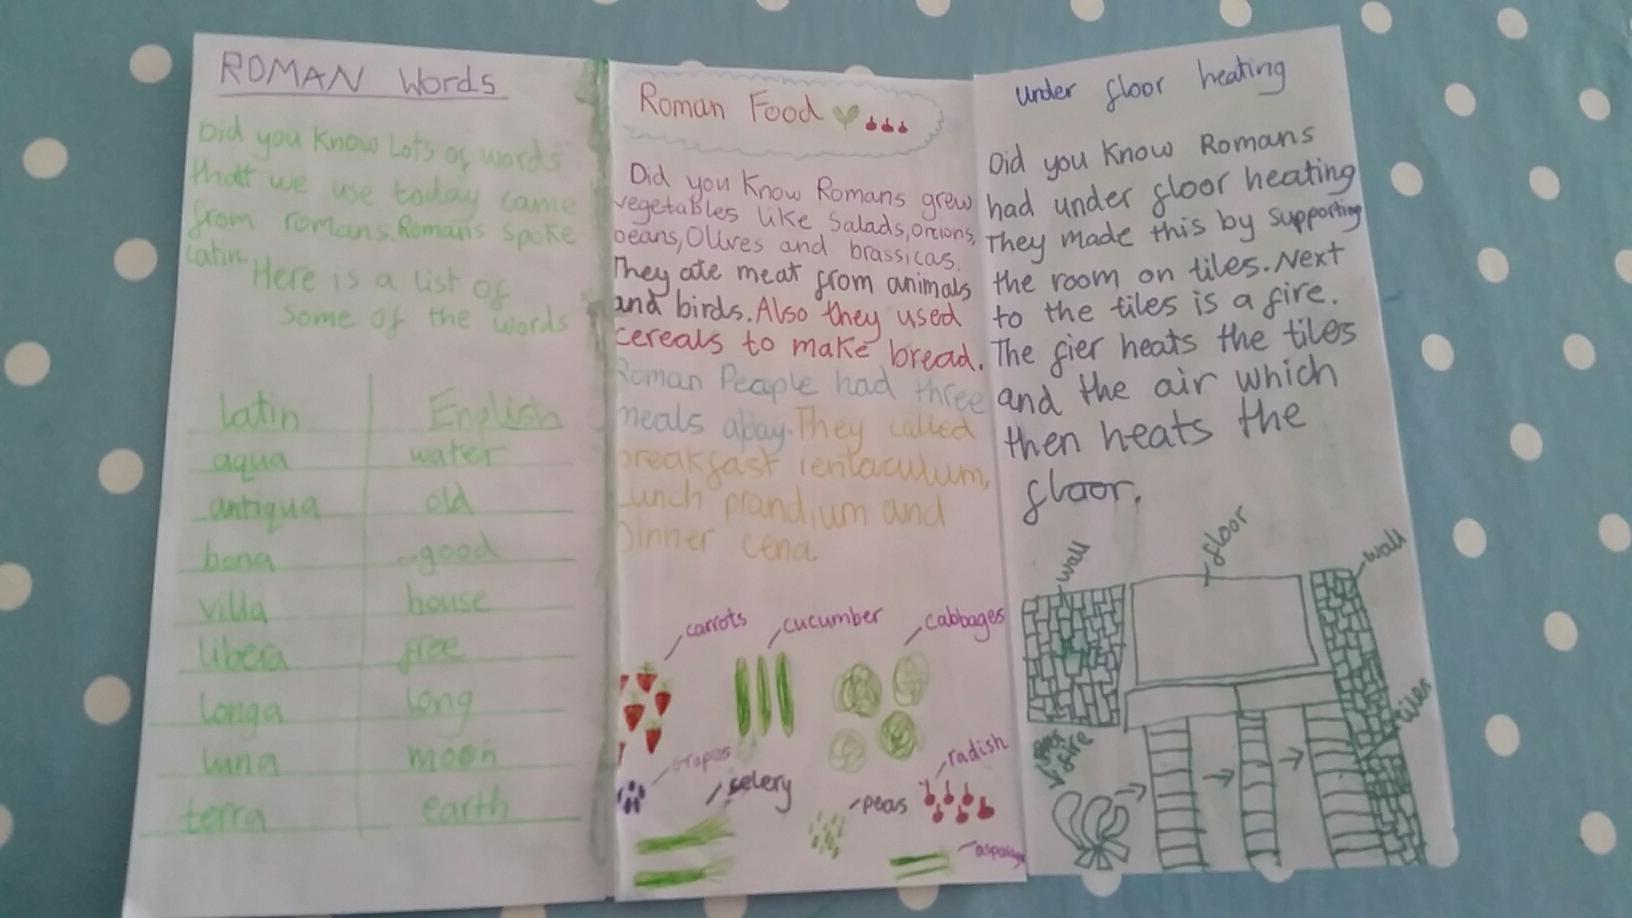 ROMAN Words
Did you Know Lots of words
thatt we use today came
from romans. Romans spoke
Latin.
Here is a list of
some of the words
latin English
aqua water
antiqua old
bona good
villa house
libera free
longa long
luna moon
terra earth
Roman Food
Did you Know Romans grew
vegetables like Salads, onions,
beans, Olives and brassicas.
They ate meat from animals
and birds. Also they used
cereals to make bread.
Roman Peaple had three
meals abay. They called
breakfast ientaculum,
Lunch prandium and
Dinner cena.
carrots
cucumber
cabbages
grapes
selery
peas
radish
under floor heating
Did you Know Romans
had under floor heating
They made this by supporting
the room on tiles. Next
to the tiles is a fire.
The fier heats the tiles
and the air which
then heats the
floor.
wall
floor
wall
tiles
fire